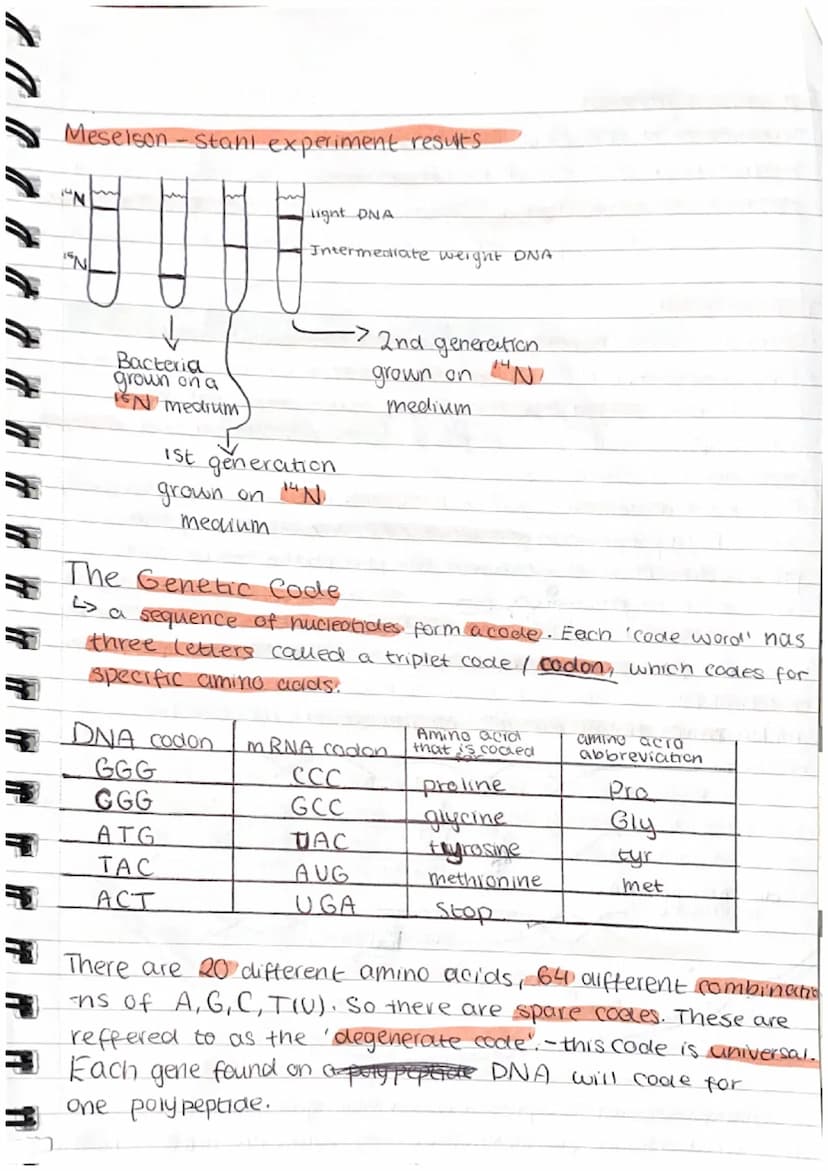 Meselson - Stahl experiment results
¹⁴N
light DNA
¹⁵N
Intermediate weight DNA
Bacteria
grown on a
¹⁵N medium
2nd generation
grown on ¹⁴N
medium
1st generation
grown on ¹⁴N
medium
The Genetic Code
↳ a sequence of nucleotides form a code. Each 'code word' has
three letters called a triplet code / codon, which codes for
specific amino acids.
DNA codon mRNA codon Amino acid that is coded amino acid abbreviation
GGG CCC proline Pro
GGG GCC glycine Gly
ATG UAC tyrosine tyr
TAC AUG methionine met
ACT UGA Stop
There are 20 different amino acids, 64 different combinatio
-ns of A,G,C,T(U). So there are spare codes. These are
reffered to as the 'degenerate code'. - this code is universal.
Each gene found on a polypeptide DNA will code for
one polypeptide.